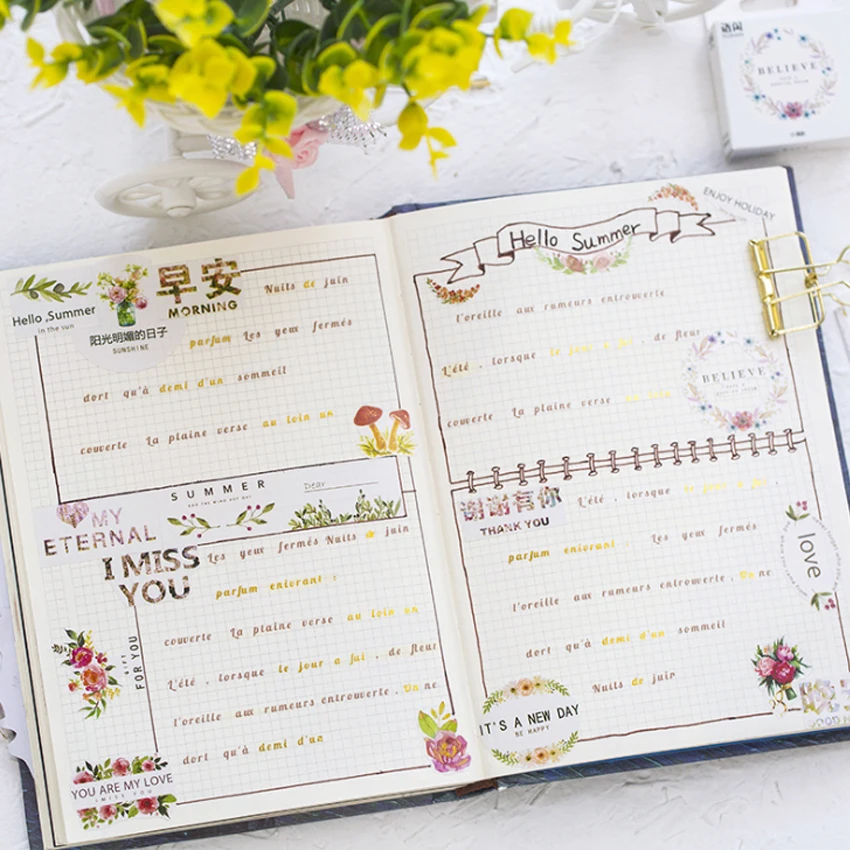 BELIEVE
Hello ,Summer
in the sun
早安
MORNING
阳光明媚的日子
SUNSHINE
Nuits de juin
parfum Les yeux fermés
dort qu'à demi d'un sommeil
couverte La plaine verse au loin un
SUMMER
Dear
MY
ETERNAL
I MISS
YOU
Les yeux fermés Nuits de juin
parfum enivrant
couverte La plaine verse au loin un
L'été , lorsque le jour a fui , de fleur
l'oreille aux rumeurs entrouverte , On ne
dort qu'à demi d'un
FOR YOU
YOU ARE MY LOVE
I MISS YOU
ENJOY HOLIDAY
Hello Summer
l'oreille aux rumeurs entrouverte
L'été , lorsque le jour a fui , de fleur
couverte La plaine verse au loin
BELIEVE
谢谢有你
THANK YOU
L'été , lorsque le jour a fui ,
parfum enivrant : Les yeux fermés
l'oreille aux rumeurs entrouverte , On ne
dort qu'à demi d'un sommeil
Nuits de juin
love
IT'S A NEW DAY
BE HAPPY
晚安